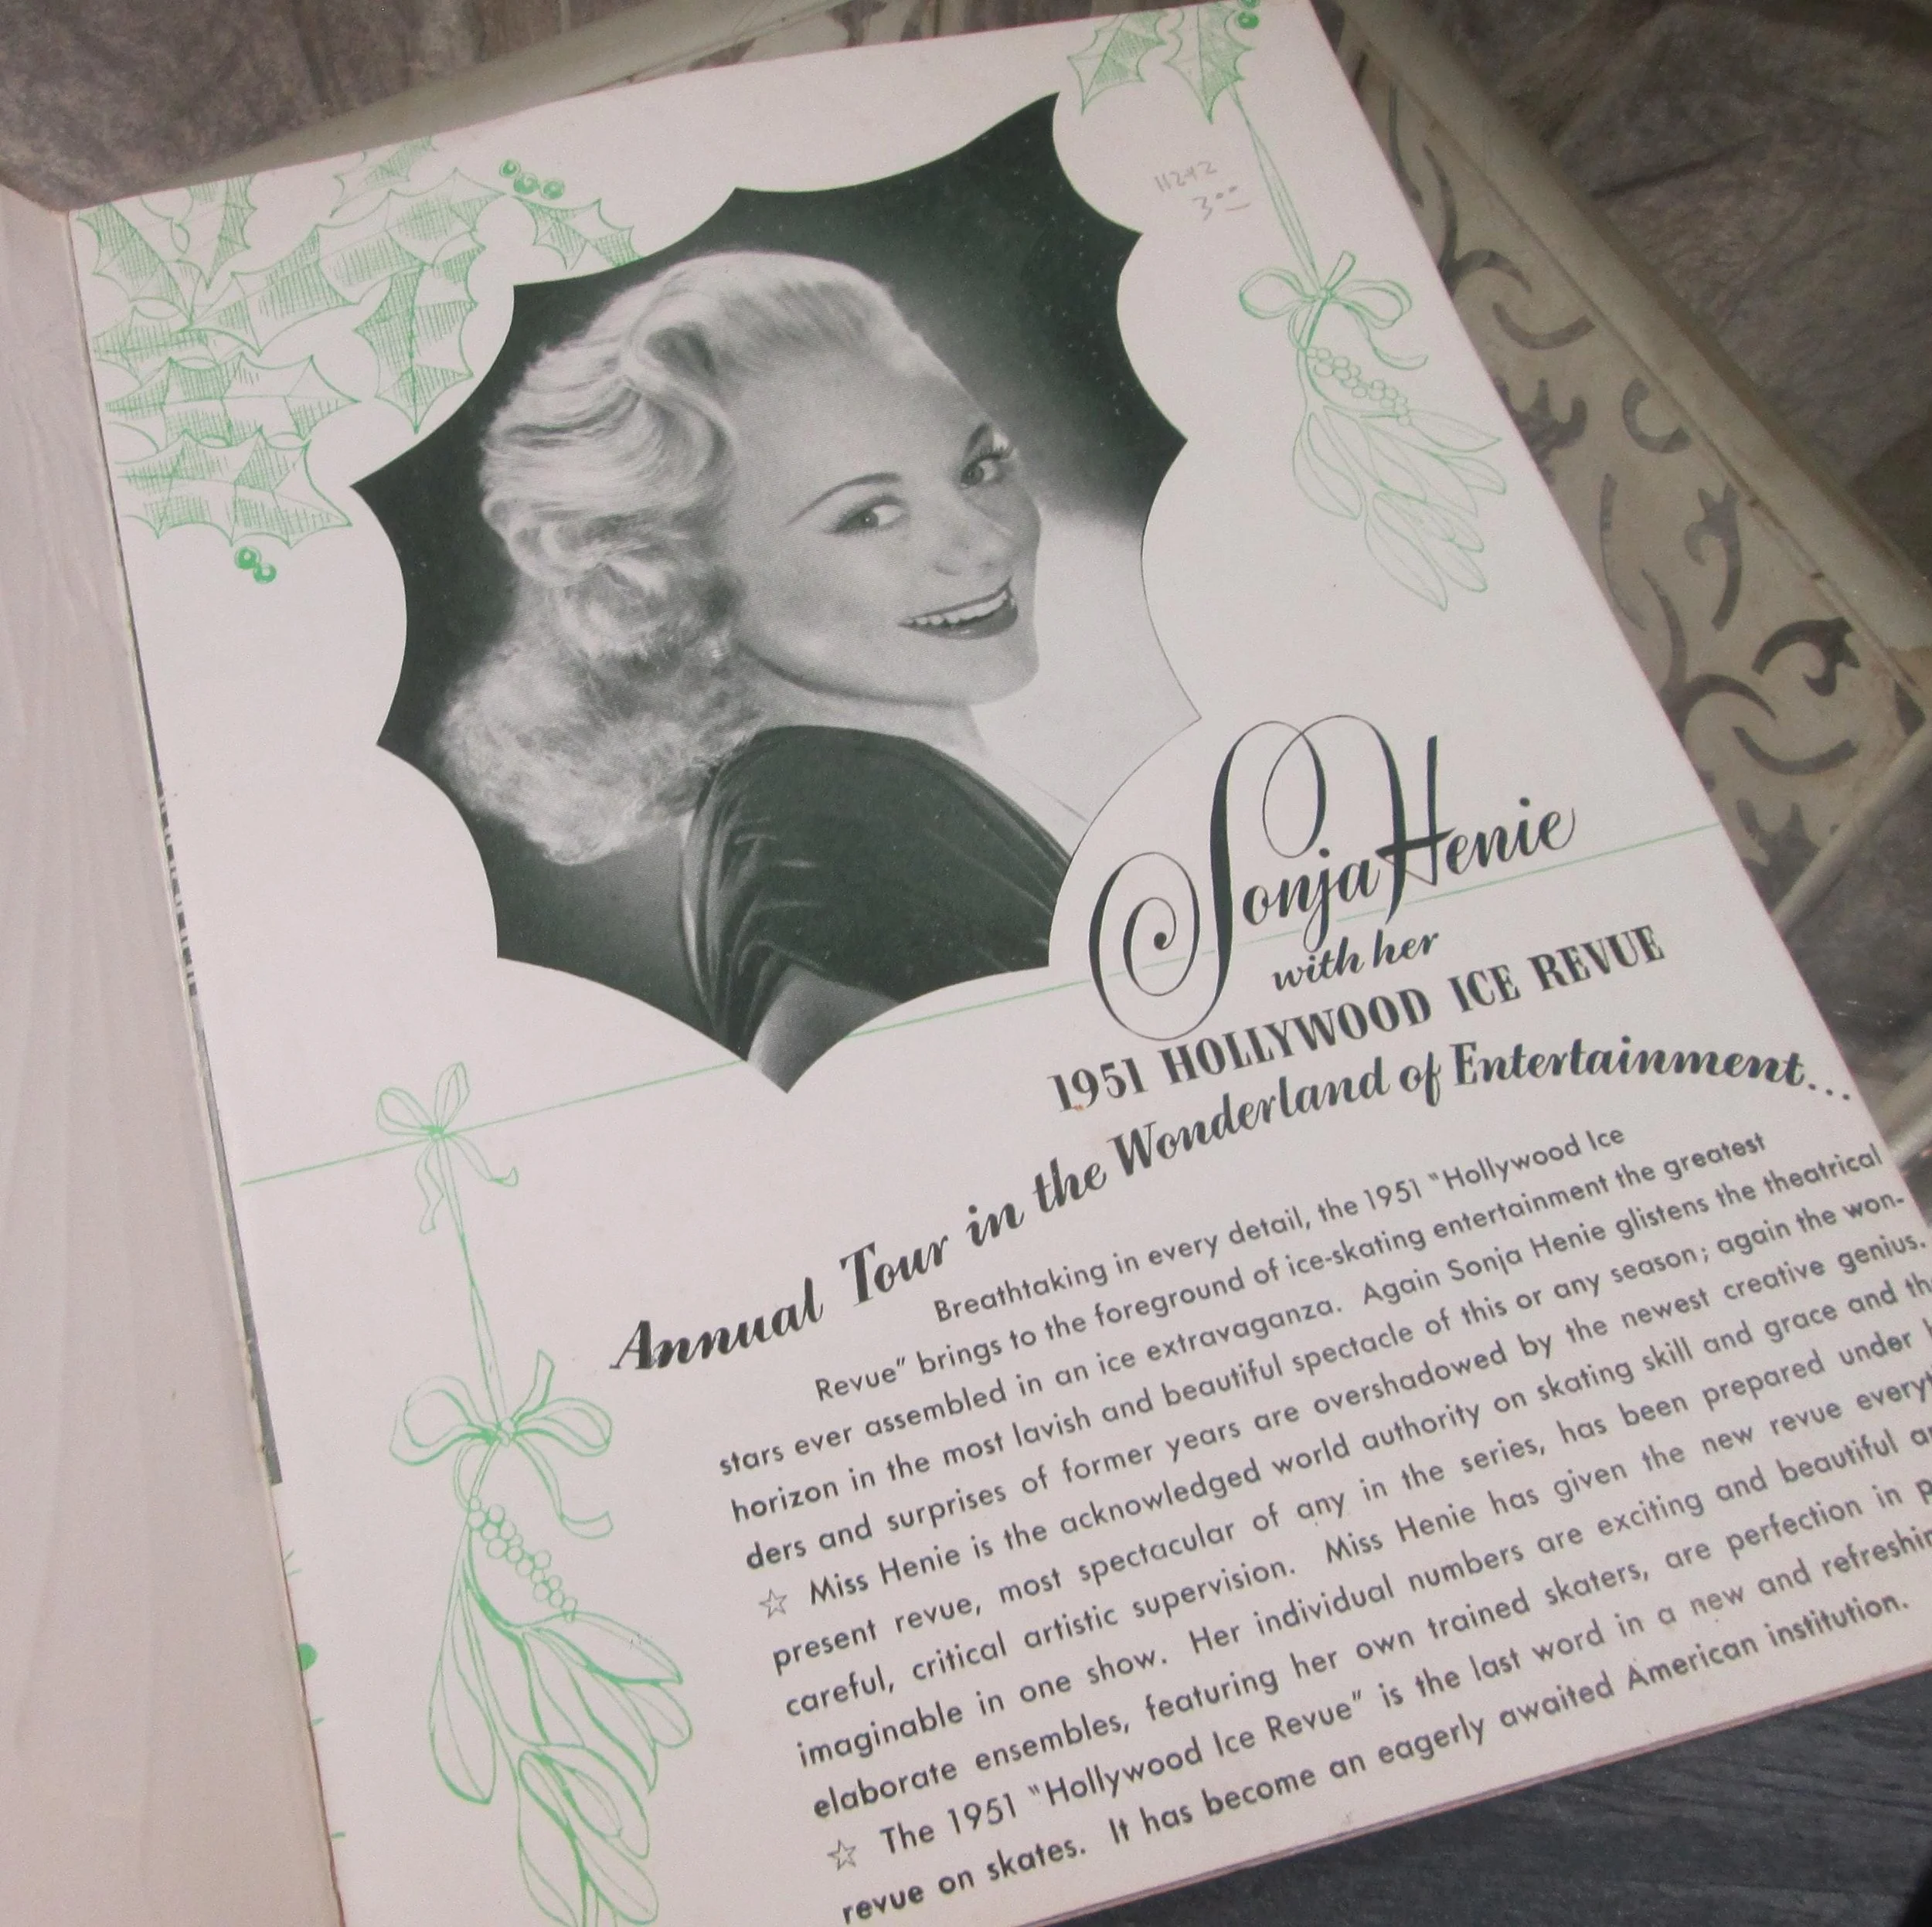 11242
3.00
Sonja Henie
with her
1951 HOLLYWOOD ICE REVUE
Annual Tour in the Wonderland of Entertainment...
Breathtaking in every detail, the 1951 "Hollywood Ice
Revue" brings to the foreground of ice-skating entertainment the greatest
stars ever assembled in an ice extravaganza. Again Sonja Henie glistens the theatrical
horizon in the most lavish and beautiful spectacle of this or any season; again the won-
ders and surprises of former years are overshadowed by the newest creative genius.
☆ Miss Henie is the acknowledged world authority on skating skill and grace and
present revue, most spectacular of any in the series, has been prepared under
careful, critical artistic supervision. Miss Henie has given the new revue
imaginable in one show. Her individual numbers are exciting and beautiful
elaborate ensembles, featuring her own trained skaters, are perfection in
☆ The 1951 "Hollywood Ice Revue" is the last word in a new and
revue on skates. It has become an eagerly awaited American institution.